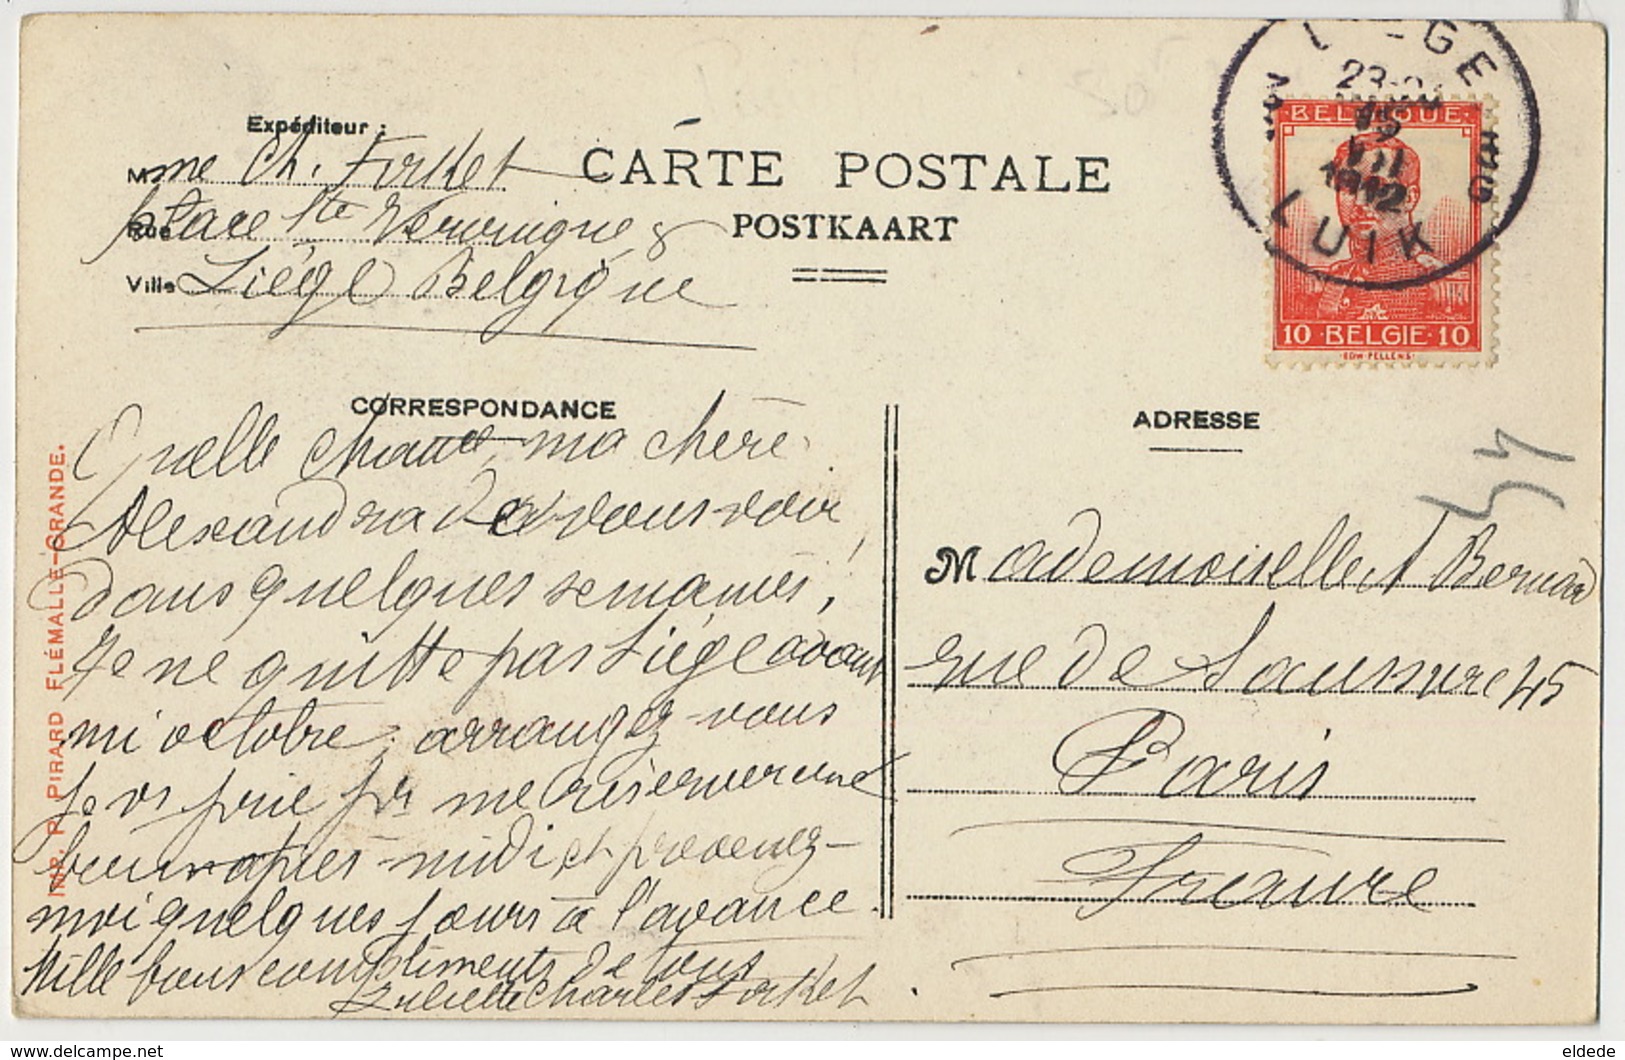 Expéditeur :
Mme Ch. Forket
CARTE POSTALE
Rue place Ste Véronique 8
POSTKAART
Ville Liége Belgique
LIEGE
LUIK
1912
BELGIQUE
10 BELGIE 10
EDW PELLENS
CORRESPONDANCE
Quelle chance, ma chère
Alexandra de vous voir
dans quelques semaines,
Je ne quitte pas Liége avant
mi octobre, arrangez vous
je vs prie pr me réserver une
bonne après-midi et prevenez-
moi quelques jours à l'avance.
Mille bons compliments de tous
Juliette Charles Forket
ADRESSE
Mademoiselle A Bernard
rue de Saussure 45
Paris
France
IMP. P. PIRARD FLÉMALLE-GRANDE.
www.delcampe.net
eldede